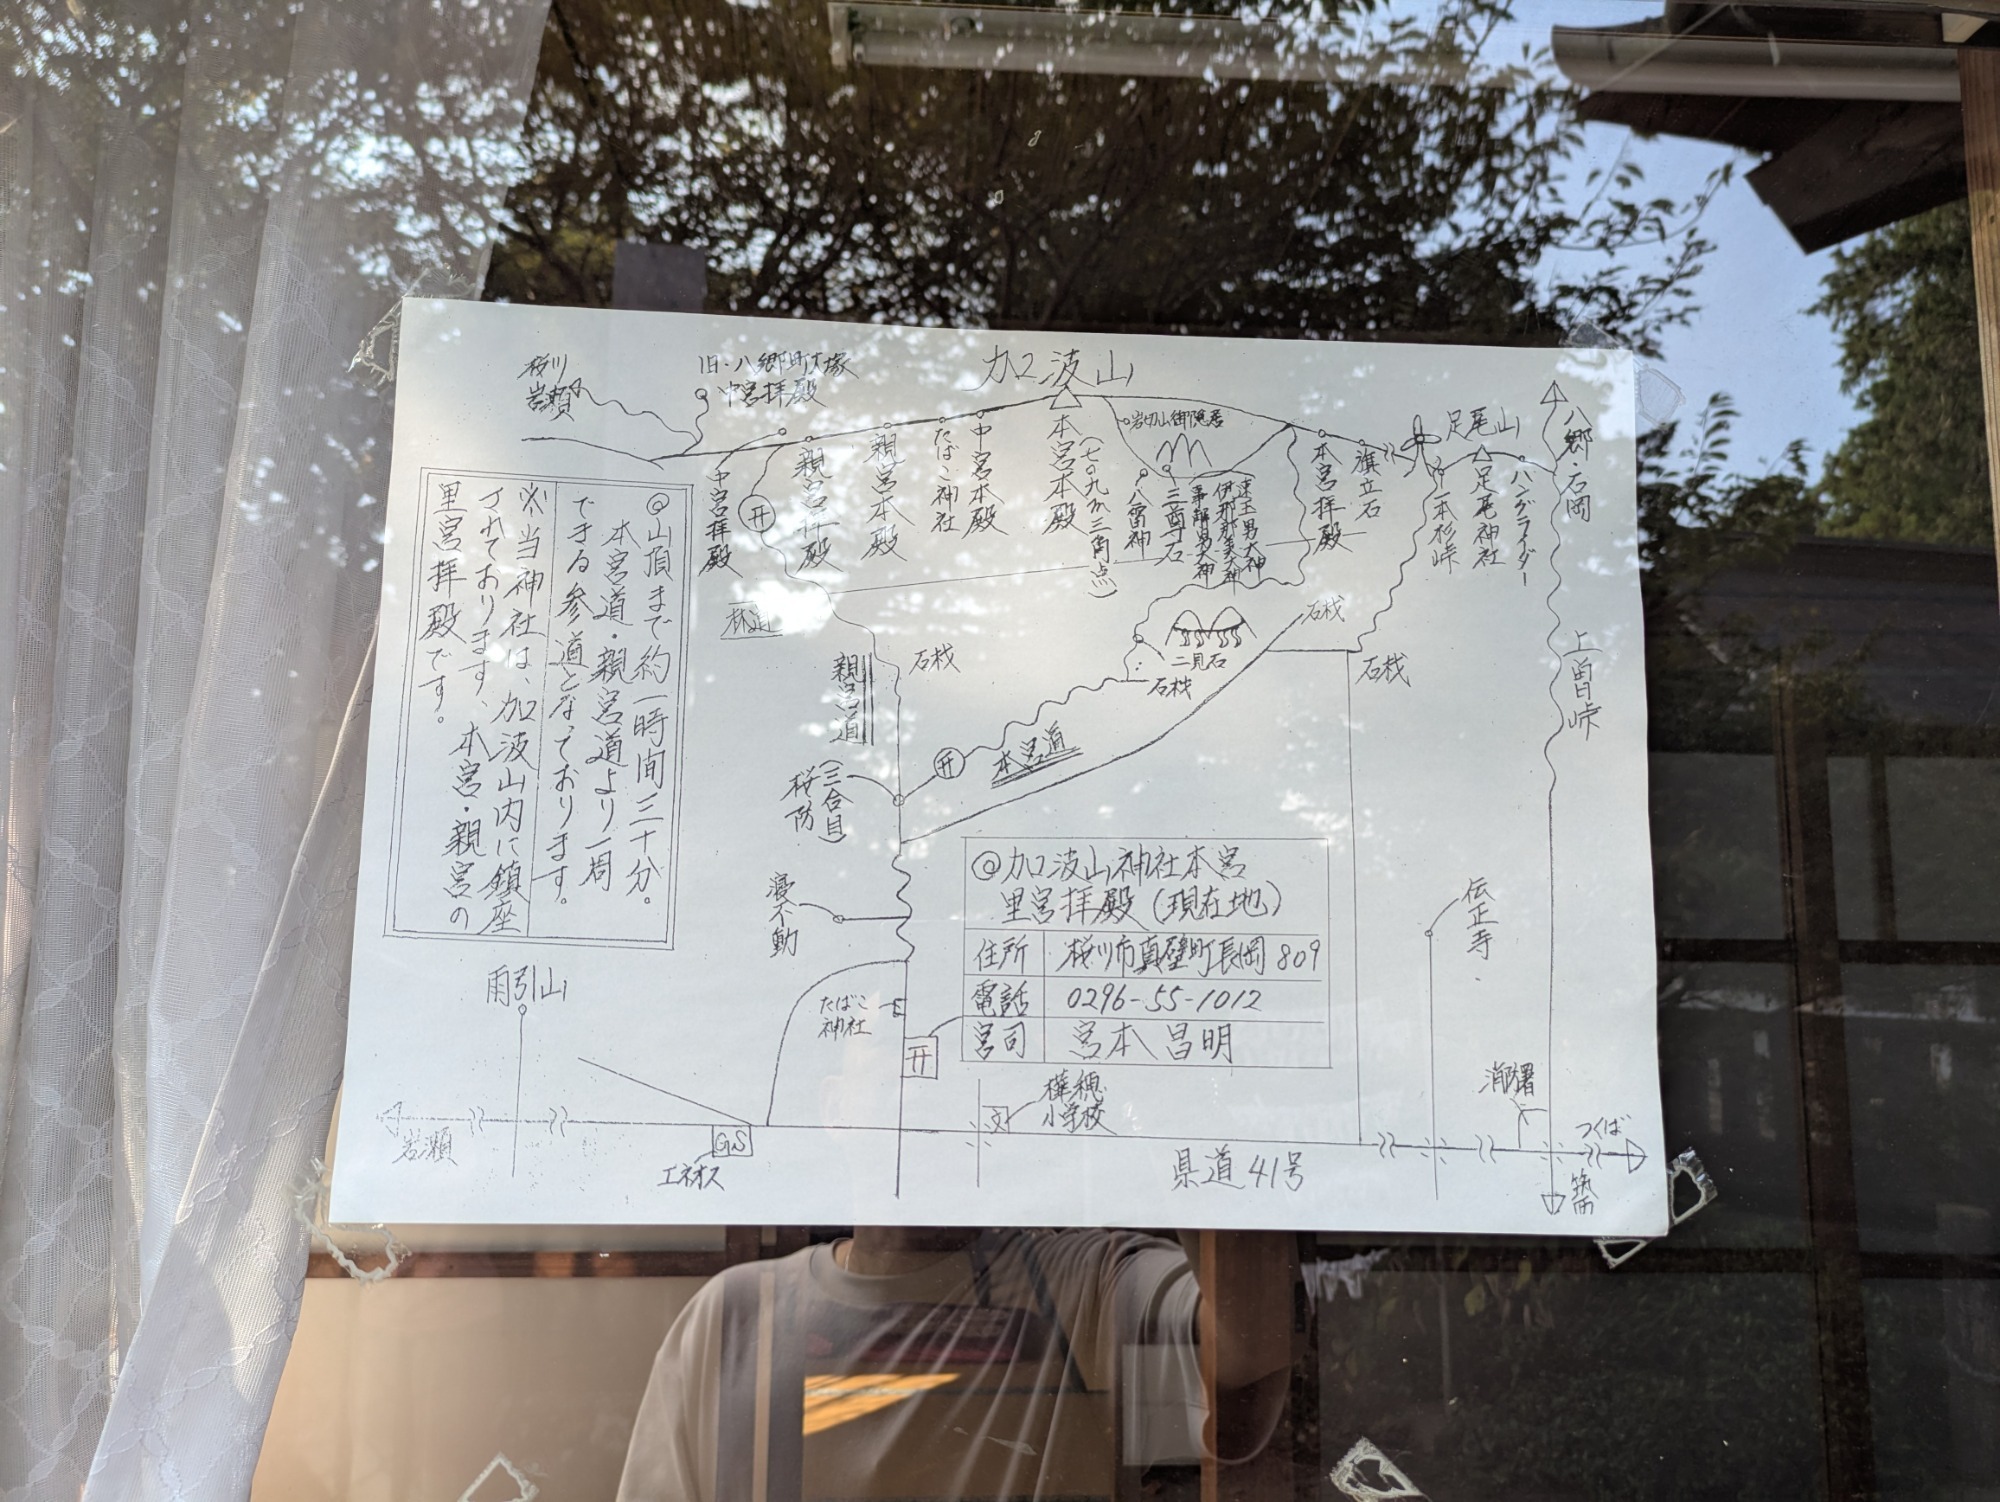 加波山
桜川
岩瀬
旧・八郷町大塚
中宮拝殿
八郷・石岡
足尾山
ハングライダー
足尾神社
一本杉峠
旗立石
本宮拝殿
岩切山御隠居
速玉男大神
伊邪那美大神
事解男大神
三尊石
八雷神
本宮本殿
(七〇九m三角点)
中宮本殿
たばこ神社
親宮本殿
親宮拝殿
中宮拝殿
林道
石桟
親宮道
石桟
二見石
石桟
石桟
上曽峠
本宮道
(三合目)
桜防
寝不動
◎山頂まで約一時間三十分。
本宮道・親宮道より一周
できる参道となっております。
※当神社は、加波山内に鎮座
されております、本宮・親宮の
里宮拝殿です。
◎加波山神社本宮
里宮拝殿(現在地)
住所 桜川市真壁町長岡809
電話 0296-55-1012
宮司 宮本昌明
伝正寺
雨引山
たばこ
神社
樺穂
小学校
文
消防署
岩瀬
GS
エネオス
県道41号
つくば